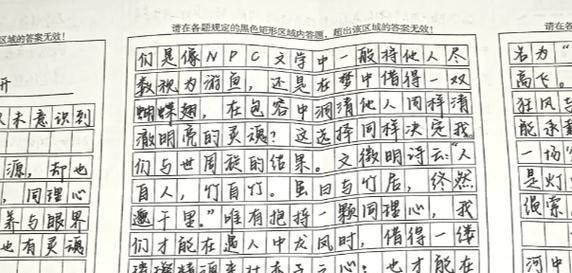 区域的答案无效!
请在各题规定的黑色矩形区域内答题,超出该区域的答案无效!
请在各
开
从未意识到
源,却也
,同理心
养与眼界
也有灵魂
们是像NPC文学中一般将他人尽
数视为游鱼,还是在梦中借得一双
蝴蝶翅,在包容中洞清他人同样清
澈明亮的灵魂?这选择同样决定我
们与世周旋的结果。文徵明诗云:“人
自人,竹自竹。虽日与竹居,终然
邈千里。”唯有抱持一颗同理心,我
们才能在遇人中龙凤时,借得一缕
也才能在
名为“
高飞。
狂风与
能承载
一场
是灯
绳索
河中